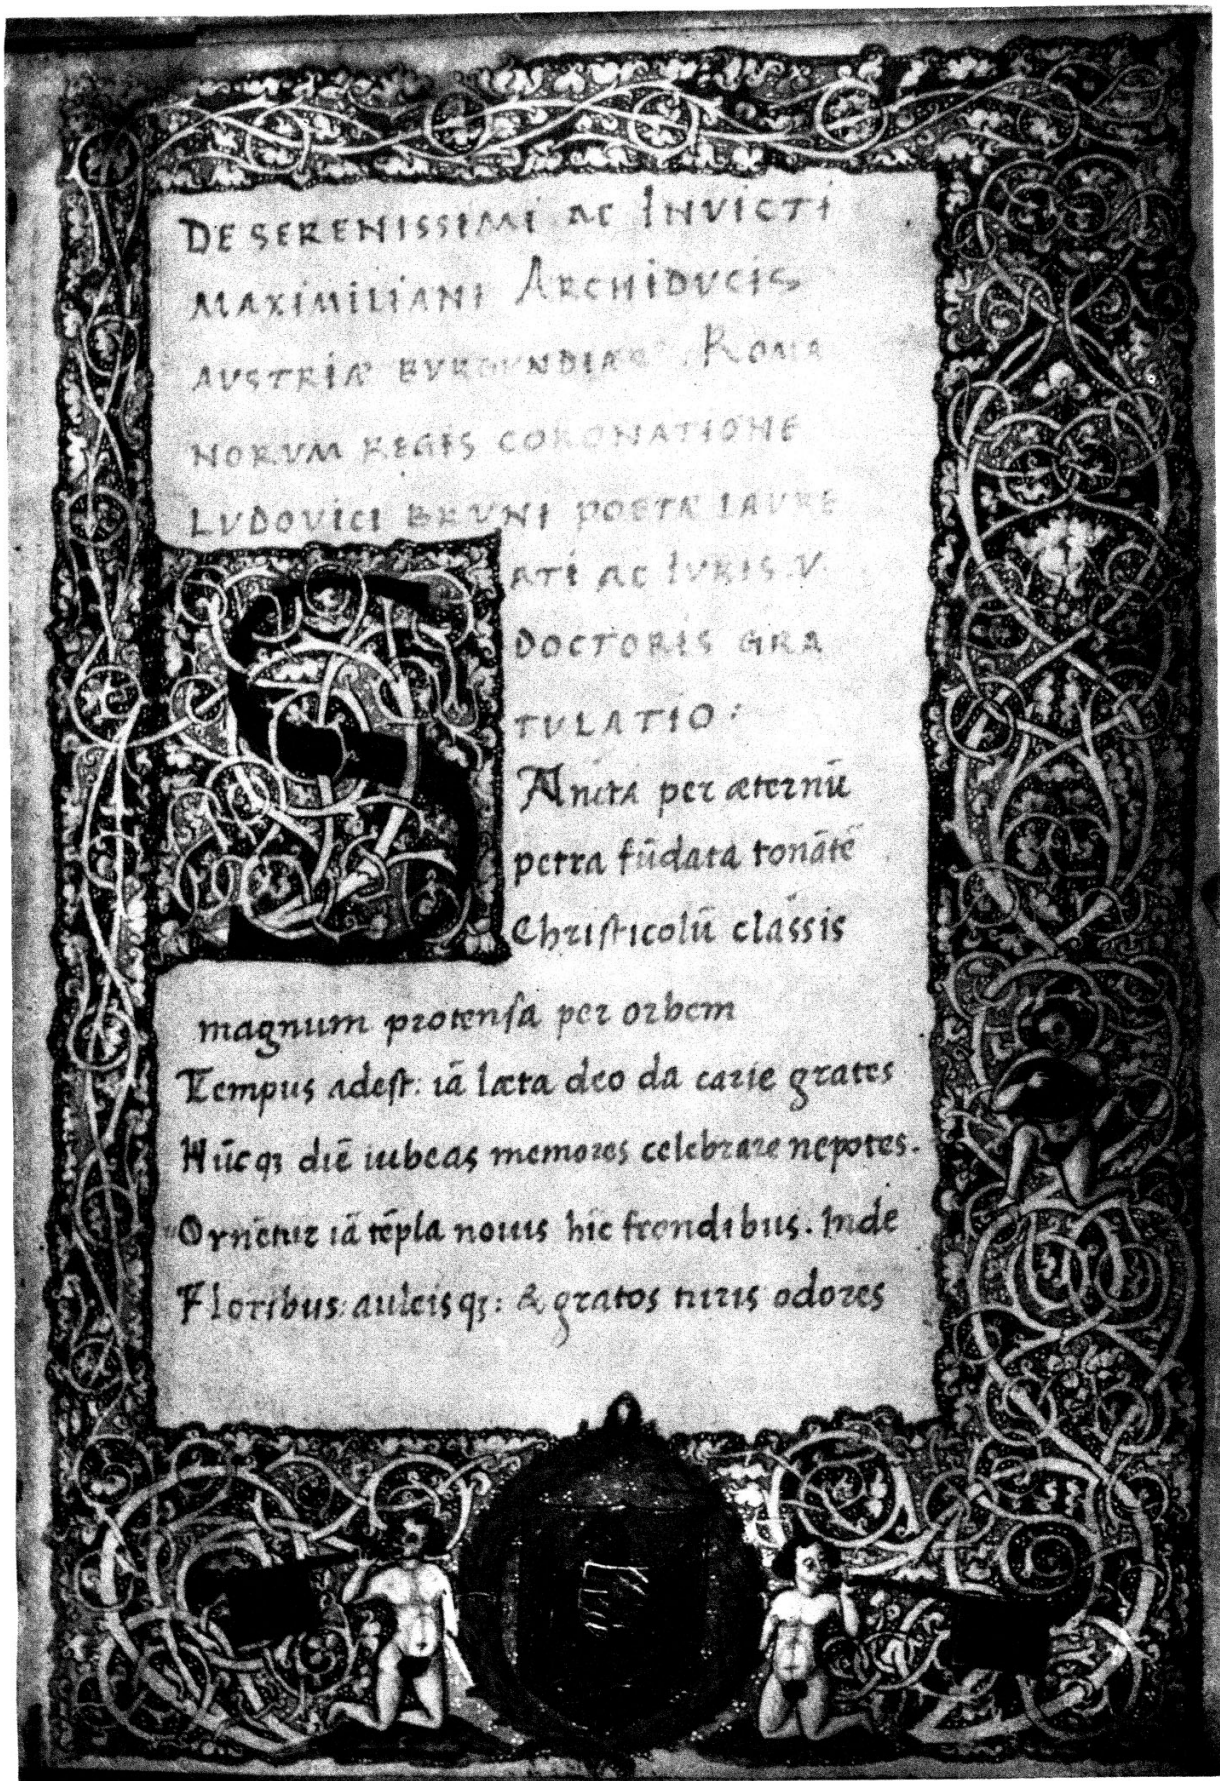 DE SERENISSIMI AC INVICTI
MAXIMILIANI ARCHIDVCIS
AVSTRIÆ BVRGVNDIÆQ. ROMA
NORVM REGIS CORONATIONE
LVDOVICI BRVNI POETÆ LAVRE
ATI AC IVRIS. V.
DOCTORIS GRA
TVLATIO:
S Ancta per æternū
petra fūdata tonātē
Christicolū classis
magnum protensa per orbem
Tempus adest: iā læta deo da carie grates
Hūcqȝ diē iubeas memores celebrare nepotes.
Ornētur iā tēpla nouis hīc frondibus. Inde
Floribus: auleisqȝ: & gratos turis odores